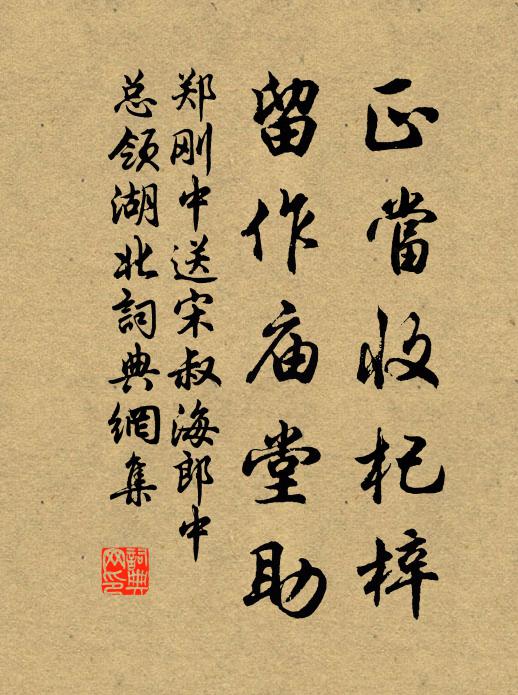 正當收杞梓
留作庙堂助
郑刚中送宋叔海郎中
总领湖北詞典網集
詞典网印